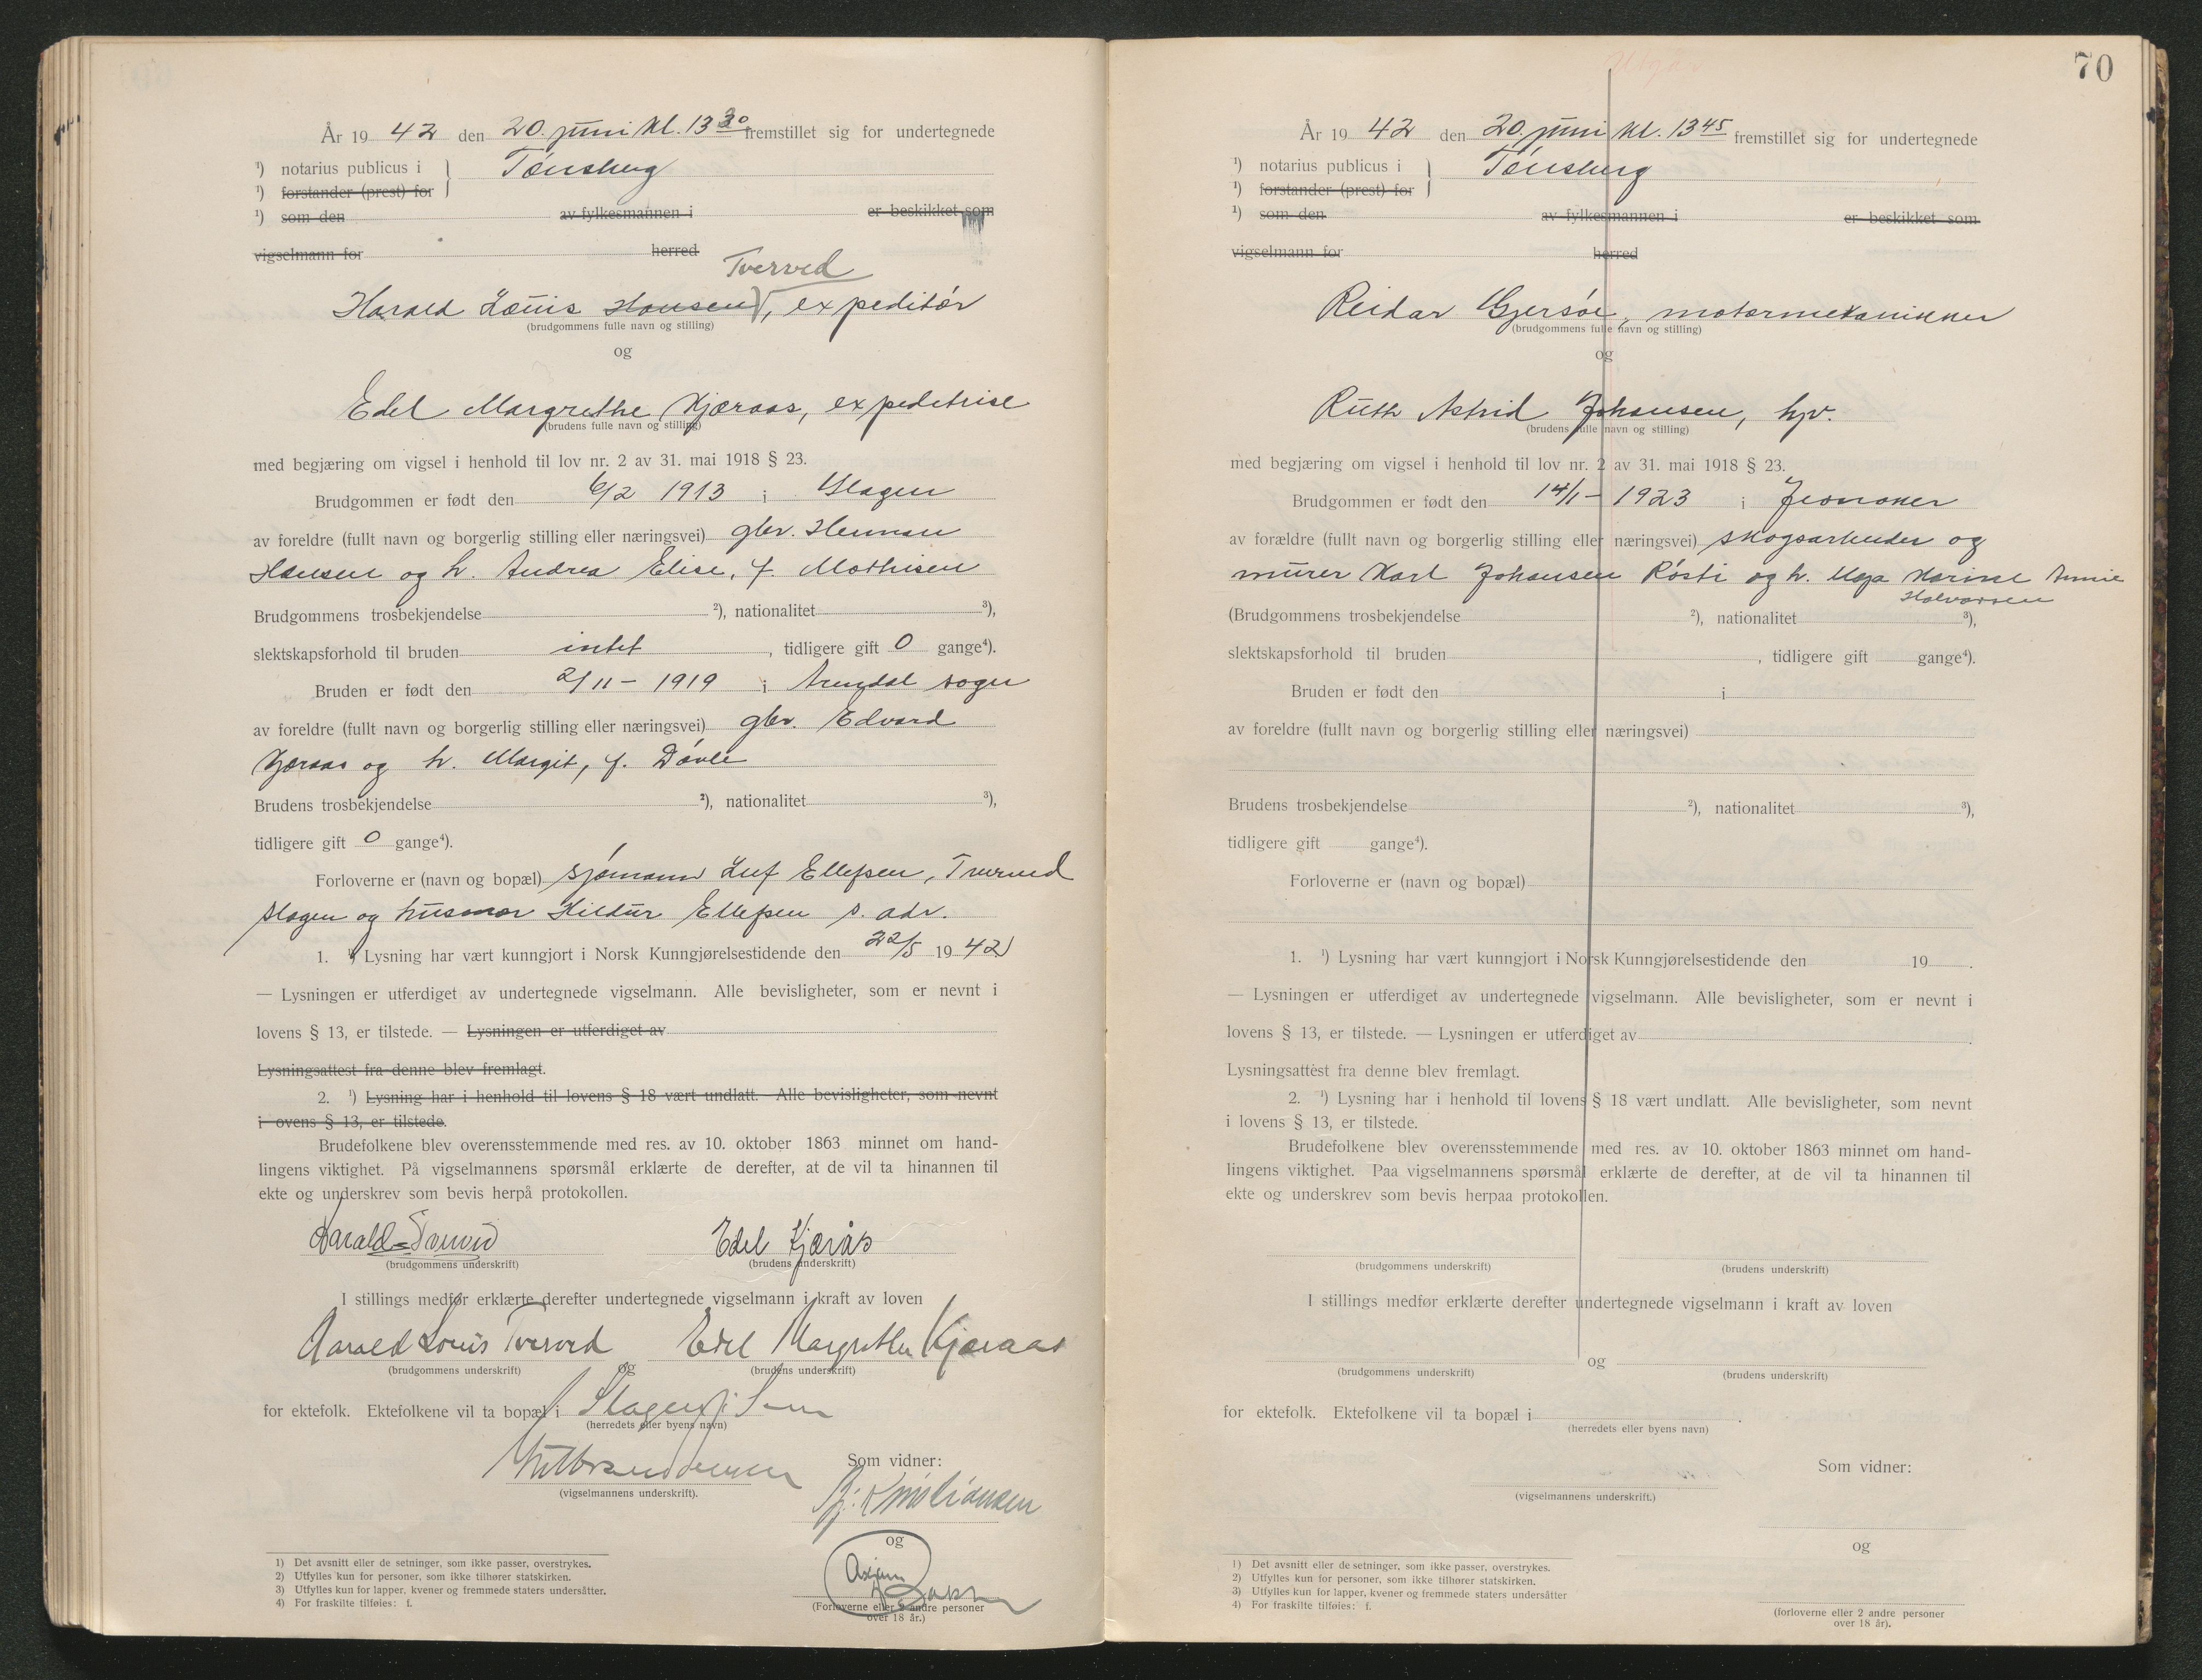 År 19 42 den 20. juni kl. 13 30 fremstillet sig for undertegnede
¹) notarius publicus i } Tønsberg
¹) forstander (prest) for
¹) som den av fylkesmannen i er beskikket som
vigselmann for herred
Tverved
Harald Louis Hansen, expeditør
(brudgommens fulle navn og stilling)
og
Edel Margrethe Kjæraas, expeditrise
(brudens fulle navn og stilling)
med begjæring om vigsel i henhold til lov nr. 2 av 31. mai 1918 § 23.
Brudgommen er født den 6/2 1913 i Slagen
av foreldre (fullt navn og borgerlig stilling eller næringsvei) gbr. Herman
Hansen og h. Andrea Elise, f. Mathisen
Brudgommens trosbekjendelse ²), nationalitet ³),
slektskapsforhold til bruden intet, tidligere gift 0 gange⁴).
Bruden er født den 2/11 - 1919 i Arendal sogn
av foreldre (fullt navn og borgerlig stilling eller næringsvei) gbr. Edvard
Kjæraas og h. Margit, f. Døvle
Brudens trosbekjendelse ²), nationalitet ³),
tidligere gift 0 gange⁴).
Forloverne er (navn og bopæl) sjømann Leif Ellefsen, Tverved
Slagen og husmor Hildur Ellefsen s. adr.
1. ¹) Lysning har vært kunngjort i Norsk Kunngjørelsestidende den 22/5 19 42
— Lysningen er utferdiget av undertegnede vigselmann. Alle bevisligheter, som er nevnt i
lovens § 13, er tilstede. — Lysningen er utferdiget av
Lysningsattest fra denne blev fremlagt.
2. ¹) Lysning har i henhold til lovens § 18 vært undlatt. Alle bevisligheter, som nevnt
i ovens § 13, er tilstede.
Brudefolkene blev overensstemmende med res. av 10. oktober 1863 minnet om hand-
lingens viktighet. På vigselmannens spørsmål erklærte de derefter, at de vil ta hinannen til
ekte og underskrev som bevis herpå protokollen.
Harald Tverved Edel Kjærås
(brudgommens underskrift) (brudens underskrift)
I stillings medfør erklærte derefter undertegnede vigselmann i kraft av loven
Harald Louis Tverved og Edel Margrethe Kjæraas
(brudgommens underskrift) (brudens underskrift)
for ektefolk. Ektefolkene vil ta bopæl i Slagen i Sem
(herredets eller byens navn)
(vigselmannens underskrift).
Som vidner:
Bj. Kristiansen
og
(Forloverne eller 2 andre personer
over 18 år.)
1) Det avsnitt eller de setninger, som ikke passer, overstrykes.
2) Utfylles kun for personer, som ikke tilhører statskirken.
3) Utfylles kun for lapper, kvener og fremmede staters undersåtter.
4) For fraskilte tilføies: f.
70
Utgår
År 19 42 den 20. juni kl. 13 45 fremstillet sig for undertegnede
¹) notarius publicus i } Tønsberg
¹) forstander (prest) for
¹) som den av fylkesmannen i er beskikket som
vigselmann for herred
Reidar Gjersøe, motormekaniker
(brudgommens fulle navn og stilling)
og
Ruth Astrid Johansen, hjv.
(brudens fulle navn og stilling)
med begjæring om vigsel i henhold til lov nr. 2 av 31. mai 1918 § 23.
Brudgommen er født den 14/1 - 1923 i
av forældre (fullt navn og borgerlig stilling eller næringsvei) skogsarbeider og
murer Karl Johansen Røsti og h. Maja Karine Annie
Halvorsen
(Brudgommens trosbekjendelse ²), nationalitet ³),
slektskapsforhold til bruden , tidligere gift gange⁴).
Bruden er født den i
av foreldre (fullt navn og borgerlig stilling eller næringsvei)
Brudens trosbekjendelse ²), nationalitet ³),
tidligere gift gange⁴).
Forloverne er (navn og bopæl)
1. ¹) Lysning har vært kunngjort i Norsk Kunngjørelsestidende den 19 .
— Lysningen er utferdiget av undertegnede vigselmann. Alle bevisligheter, som er nevnt i
lovens § 13, er tilstede. — Lysningen er utferdiget av
Lysningsattest fra denne blev fremlagt.
2. ¹) Lysning har i henhold til lovens § 18 vært undlatt. Alle bevisligheter, som nevnt
i lovens § 13, er tilstede.
Brudefolkene blev overensstemmende med res. av 10. oktober 1863 minnet om hand-
lingens viktighet. Paa vigselmannens spørsmål erklærte de derefter, at de vil ta hinannen til
ekte og underskrev som bevis herpaa protokollen.
(brudgommens underskrift) (brudens underskrift)
I stillings medfør erklærte derefter undertegnede vigselmann i kraft av loven
og
(brudgommens underskrift) (brudens underskrift)
for ektefolk. Ektefolkene vil ta bopæl i .
(herredets eller byens navn)
Som vidner:
(vigselmannens underskrift.)
og
(forloverne eller 2 andre personer
over 18 år).
1) Det avsnitt eller de setninger, som ikke passer, overstrykes.
2) Utfylles kun for personer, som ikke tilhører statskirken.
3) Utfylles kun for lapper, kvener og fremmede staters undersåtter
4) For fraskilte tilføies: f.